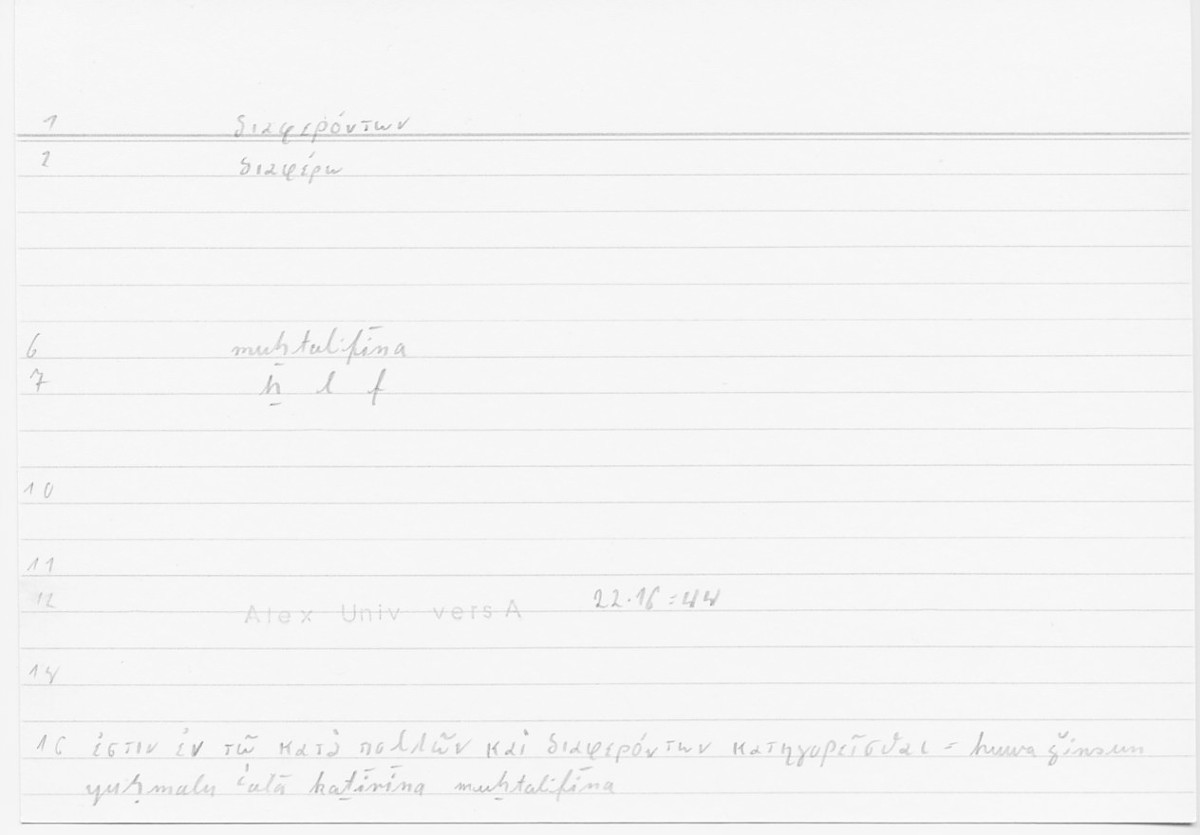 1 διαφερόντων
2 διαφέρω
6 muḫtalifīna
7 ḫ l f
10
11
12 Alex Univ vers A 22.16 = 44
14
16 ἐστιν ἐν τῷ κατὰ πολλῶν καὶ διαφερόντων κατηγορεῖσθαι = huwa ǧinsun
yuḥmalu ʿalā kaṯīrīna muḫtalifīna